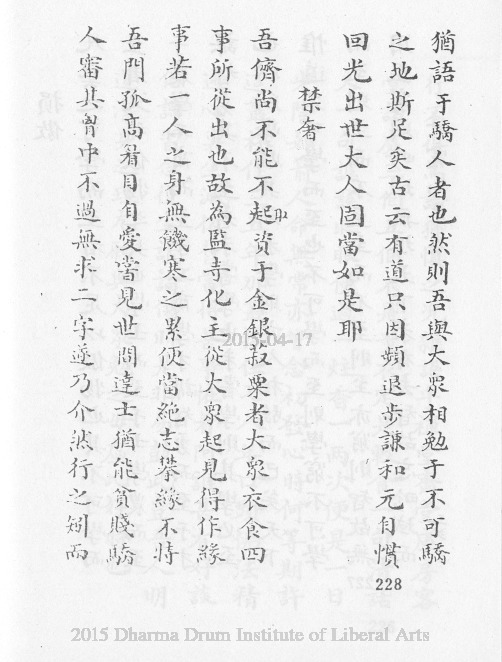 猶語于驕人者也然則吾與大眾相勉于不可驕
之地斯足矣古云有道只因頻退步謙和元自慣
回光出世大人固當如是耶
禁奢
吾儕尚不能不起取資于金銀叔粟者大眾衣食四
事所從出也故為監寺化主從大眾起見得作緣
事若一人之身無饑寒之累便當絕志攀緣不特
吾門孤高目自愛嘗見世間達士猶能貧賤驕
人審其胷中不過無求二字遂乃介然行之矧而
2015-04-17
228
2015 Dharma Drum Institute of Liberal Arts